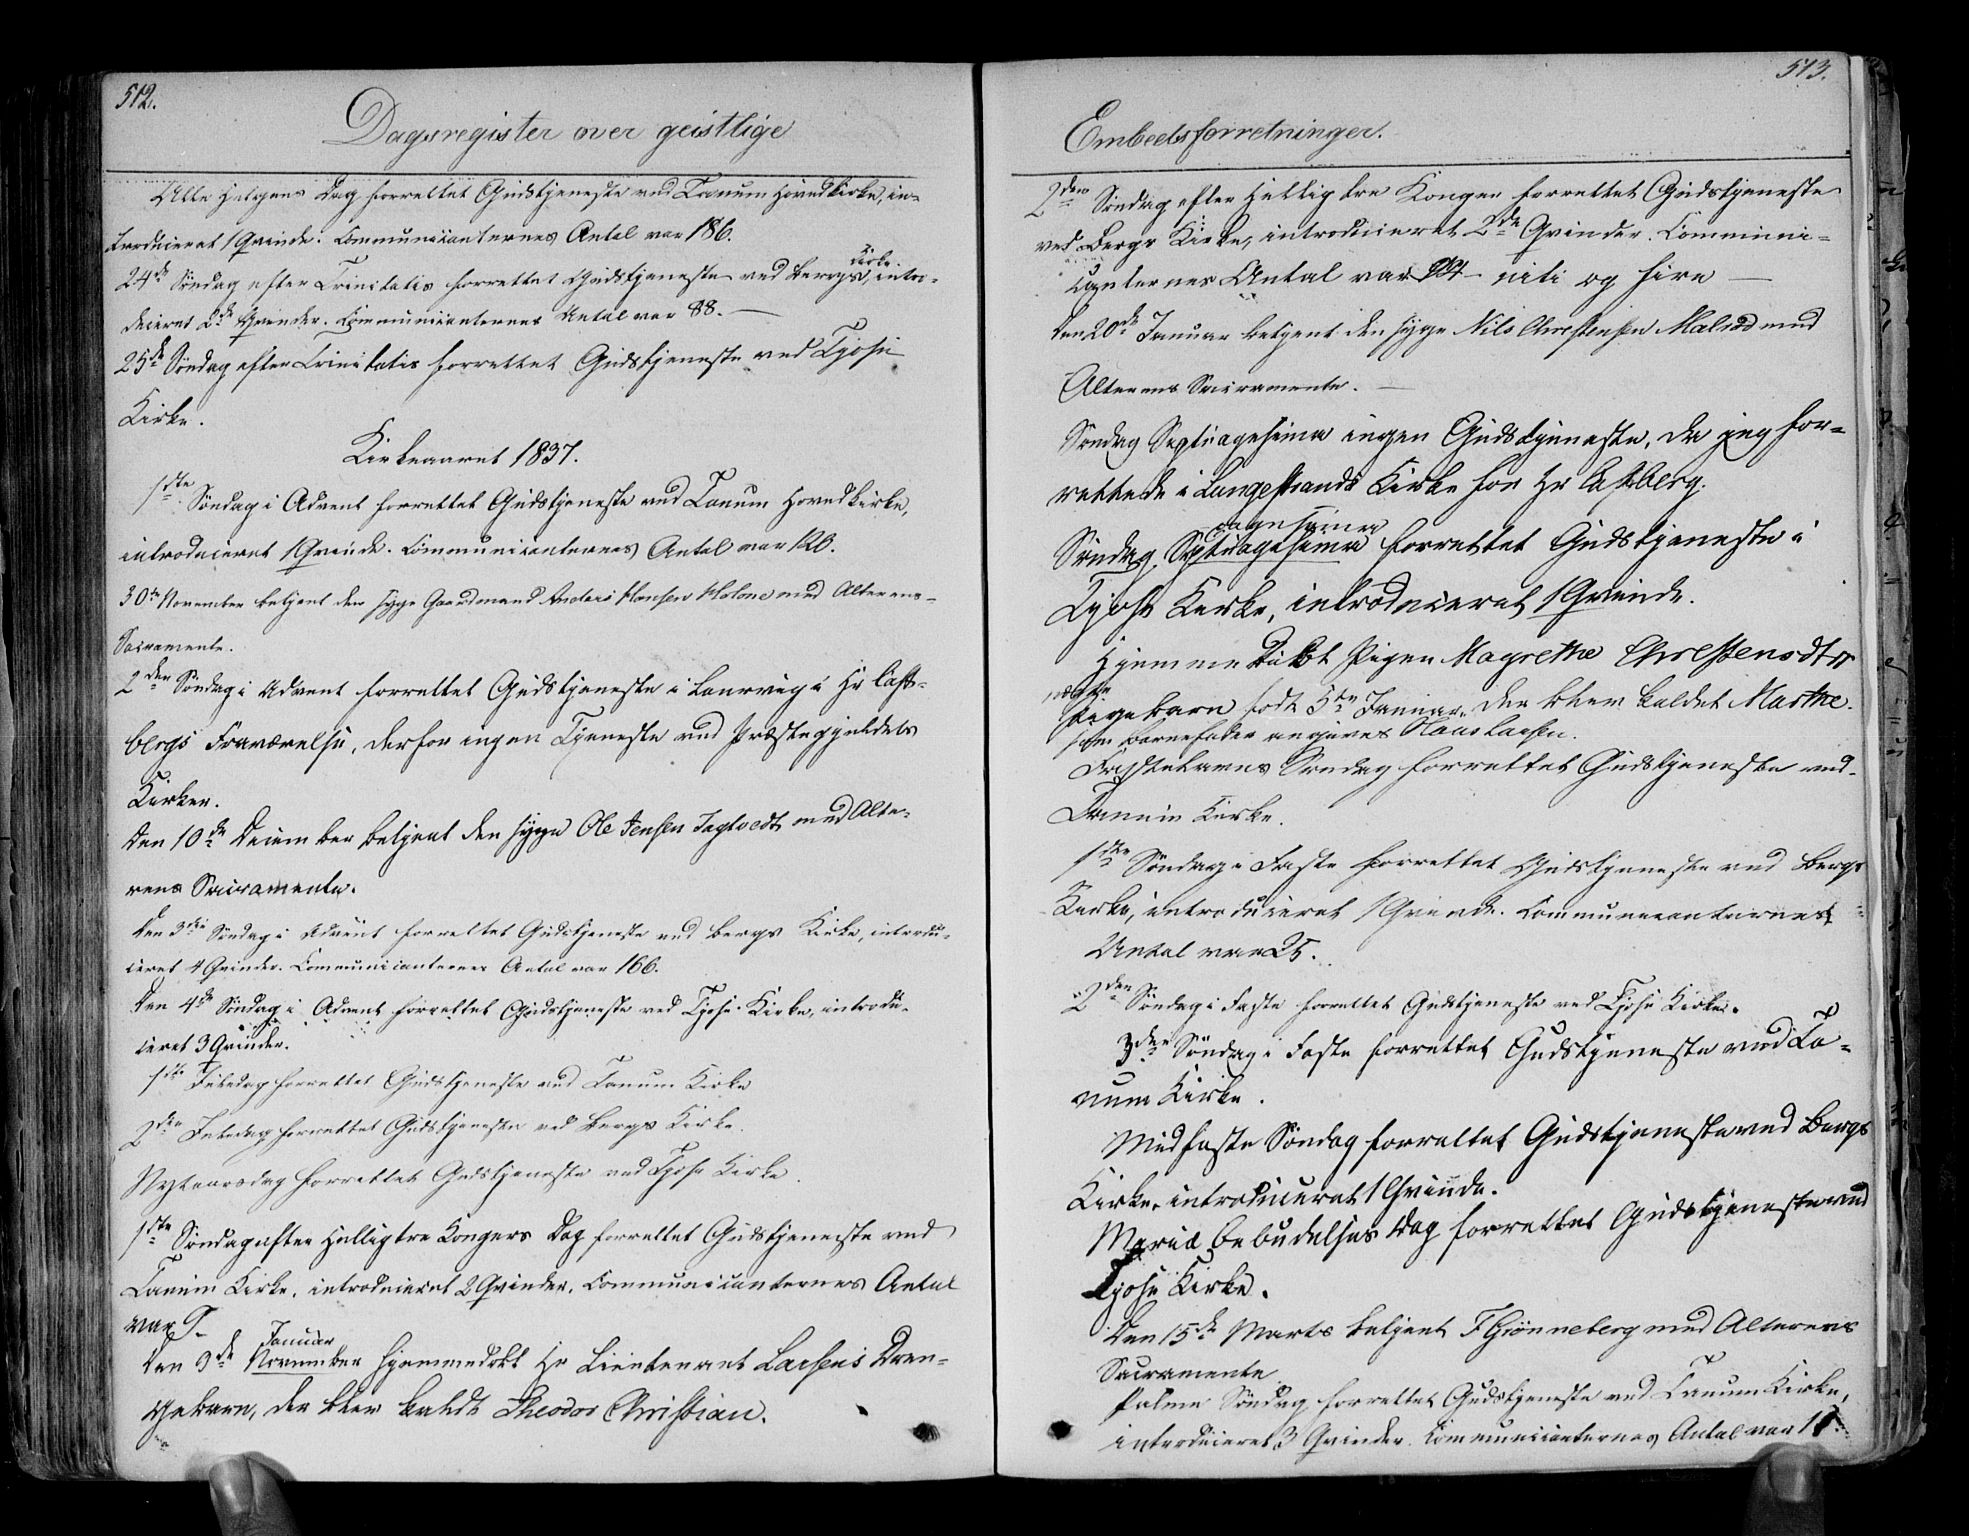 512.
Dagsregister over geistlige
Alle Helgens Dag forrettet Gudstjeneste ved Tanum Hovedkirke, in-
troduceret 1 Qvinde. Communicanternes Antal var 186.
24de Søndag efter Trinitatis forrettet Gudstjeneste ved Bergs Kirke, intro-
duceret 2de Qvinder. Communicanternes Antal var 88. —
25de Søndag efter Trinitatis forrettet Gudstjeneste ved Tjose
Kirke.
Kirkeaaret 1837.
1ste Søndag i Advent forrettet Gudstjeneste ved Tanum Hovedkirke,
introduceret 1 Qvinde. Communicanternes Antal var 120.
30te November betjent den syge Gaardmand Anders Hansen Holone med Alterens
Sacramente.
2den Søndag i Advent forrettet Gudstjeneste i Laurvig i Hr Cast-
bergs Fraværelse, derfor ingen Tjeneste ved Præstegjeldets
Kirker.
Den 10de December betjent den syge Ole Jensen Jagtvedt med Alte-
rens Sacramente.
Den 3die Søndag i Advent forrettet Gudstjeneste ved Bergs Kirke, introdu-
ceret 4 Qvinder. Communicanternes Antal var 166.
Den 4de Søndag i Advent forrettet Gudstjeneste ved Tjose Kirke, introdu-
ceret 3 Qvinder.
1ste Juledag forrettet Gudstjeneste ved Tanum Kirke
2den Juledag forrettet Gudstjeneste ved Bergs Kirke.
Nytaarsdag forrettet Gudstjeneste ved Tjose Kirke.
1ste Søndag efter Hellig tre Kongers Dag forrettet Gudstjeneste ved
Tanum Kirke, introduceret 2 Qvinder. Communicanternes Antal
var
Den 9de November Januar hjemmedøbt Hr Lieutenant Larsens Dren-
gebarn, der blev kaldt Theodor Christian.
513.
Embedsforretninger.
2den Søndag efter Hellig tre Konger forrettet Gudstjeneste
ved Bergs Kirke, introduceret 2de Qvinder. Communi-
canternes Antal var 94 niti og fire —
Den 20de Januar betjent den syge Nils Christensen Malerød med
Alterens Sacramente. —
Søndag Septuagesima ingen Gudstjeneste, da jeg for-
rettede i Langestrands Kirke for Hr Castberg.
Søndag Septuagesima forrettet Gudstjeneste i
Tjose Kirke, introduceret 1 Qvinde.
Hjemme Døbt Pigen Magrethe Christensdtr
Pigebarn født 5te Januar, der blev kaldet Marthe.
som Barnefader angives Claus Larsen.
Fastelavns Søndag forrettet Gudstjeneste ved
Tanum Kirke.
1ste Søndag i Faste forrettet Gudstjeneste ved Bergs
Kirke, introduceret 1 Qvinde. Communicanternes
Antal var 25.
2den Søndag i Faste forrettet Gudstjeneste ved Tjose Kirke.
3die Søndag i Faste forrettet Gudstjeneste ved Ta-
num Kirke.
Midfaste Søndag forrettet Gudstjeneste ved Bergs
Kirke, introduceret 1 Qvinde.
Mariæ Bebudelses Dag forrettet Gudstjeneste ved
Tjose Kirke.
Den 15de Marts betjent F Grønneberg med Alterens
Sacramente
Palme Søndag forrettet Gudstjeneste ved Tanum Kirke,
introduceret 3 Qvinder. Communicanternes Antal var